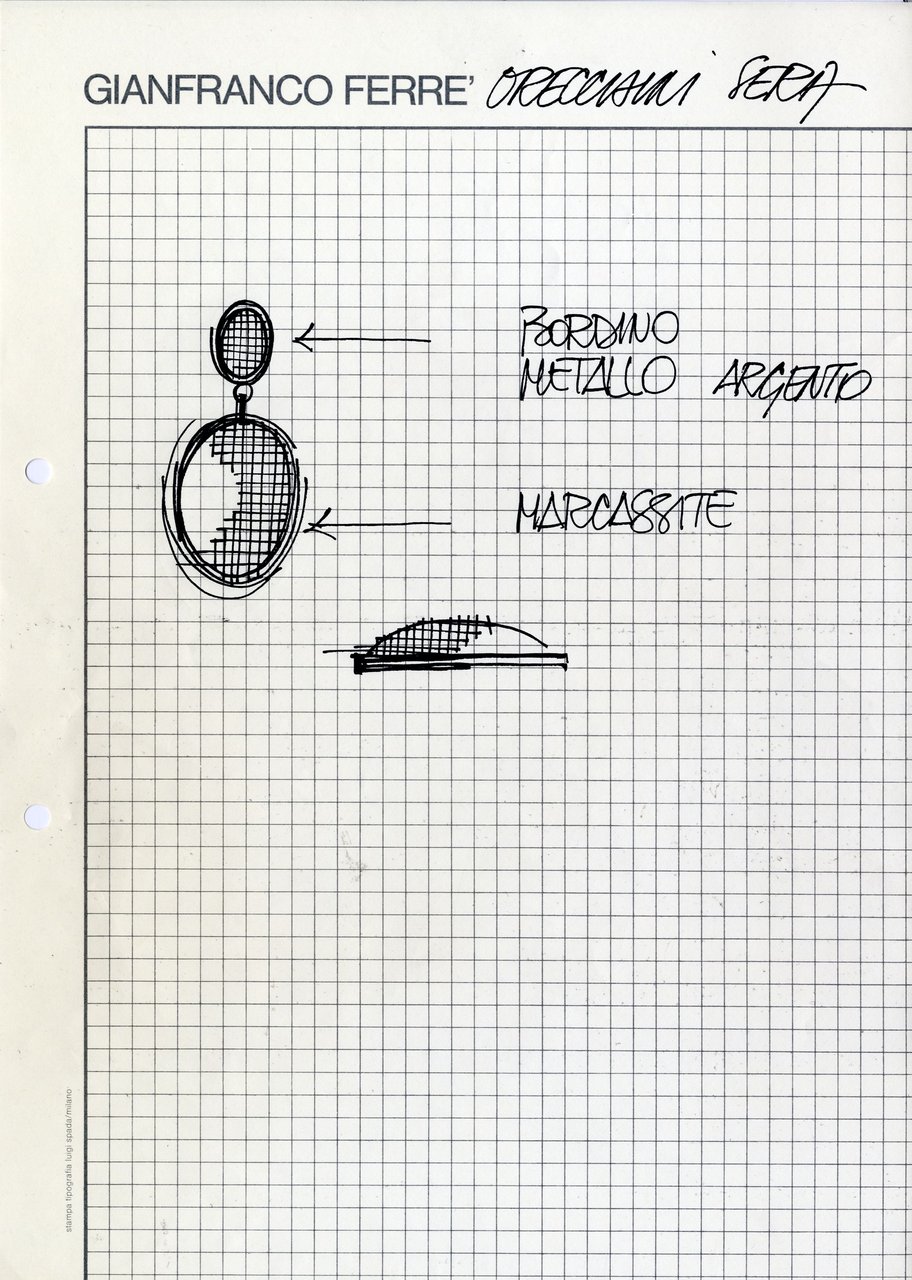 GIANFRANCO FERRE' ORECCHINI SERA
BORDINO
METALLO ARGENTO
MARCASSITE
stampa tipografia luigi spada/milano